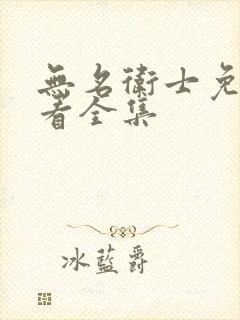 無名衛士免
看全集
冰藍爵